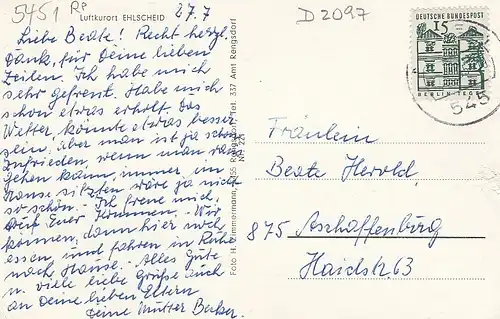 5451 Rp
Luftkurort EHLSCHEID
27.7
D 2097
Liebe Beate! Recht herzl.
Dank, für Deine lieben
Zeilen. Ich habe mich
sehr gefreut. Habe mich
schon etwas erholt das
Wetter, könnte etwas besser
sein, aber man ist ja schon
zufrieden, wenn man raus
gehen kann, immer, im
Hause sitzten wäre ja nicht
so schön. Ich freue mich,
auf Euer Kommen. Wir
können, dann hier noch
essen, und fahren in Ruhe
nach Hause. Alles Gute
u. viele liebe Grüße auch
an Deine lieben Eltern
Deine Mutter Becker.
Foto H. Zimmermann, 5455 Rengsdorf, Tel. 337 Amt Rengsdorf
Nr. 221
DEUTSCHE BUNDESPOST
15
BERLIN TEGEL
545
Fräulein
Beate Herold,
875 Aschaffenburg
Haidstr. 63